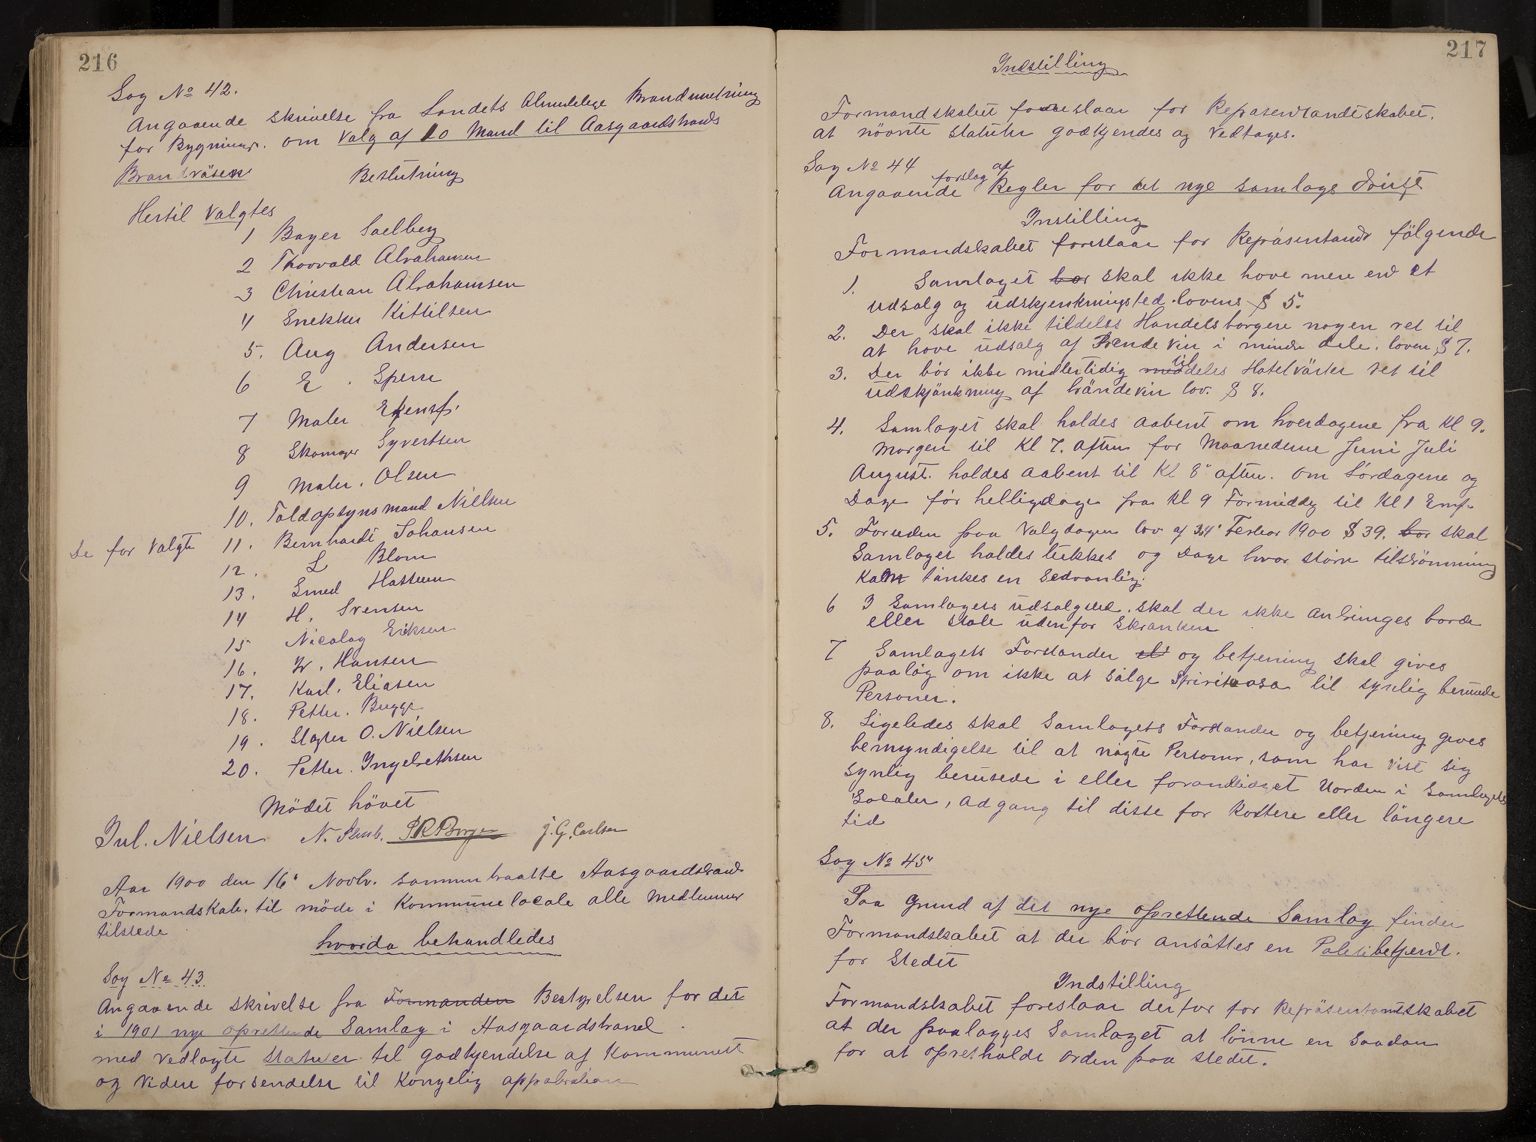 216
Sag No 42.
Angaaende skrivelse fra Landets Almindelige Brandmetning
for Bygninger. om Valg af 10 Mand til Aasgaardstrands
Brandväsen Beslutning
Hertil Valgtes
1 Bayer Saelberg
2 Thorvald Abrahamsen
3 Christian Abrahamsen
4 Snekker Kittilsen
5. Aug Andersen
6 E. Sperre
7 Maler
8 Skomager Syvertsen
9 Maler. Olsen
10. Toldopsynsmand Nielsen
De for Valgte 11. Bernhardt Johansen
12. L Blom
13. Smed Hansen
14 H. Svensen
15 Nicolay Eriksen
16. W. Hansen
17. Karl. Eliasen
18. Petter. Bugge
19. Slagter O. Nielsen
20. Petter. Ingebrethsen
Mødet hävet
Jul. Nielsen N. P. R. Borge J. G. Carlsen
Aar 1900 den 16' Novbr. sammentraatte Aasgaardstrands
Formandskab. til möde i Kommunelocale alle Medlemmer
tilstede
hvorda behandledes
Sag No 43.
Angaaende skrivelse fra Formanden Bestyrelsen for det
i 1901 nye oprettende Samlag i Aasgaardstrand.
med vedlagte Statuter til godkjendelse af Kommunett
og videre forsendelse til Kongelig approbation
217
Indstilling
Formandskabet foreslaar for Repräsentandtskabet.
at nävnte statuter godkjendes og vedtages.
Sag No 44 forslag af
Angaaende Regler for det nye samlags Drift
Instilling
Formandskabet foreslaar for Repräsentandt fölgende
1. Samlaget bør skal ikke have mere end et
udsalg og udskjenkningsted. lovens § 5.
2. Der skal ikke tildeles Handelsborgere nogen ret til
at have udsalg af Brendevin i mindre dele. loven § 7.
3. Der bör ikke midlertidig meddeles til Hotelvärter ret til
udskjänkning af brändevin lov. § 8.
4. Samlaget skal holdes aabent om hverdagene fra Kl 9.
morgen til Kl 7. aften for Maanederne Juni Juli
August. holdes aabent til Kl 8" aften. om Lördagene og
Dage før helligdage fra Kl 9 Formiddg til Kl 1 Emf.
5. Foruden paa Valgdagen lov af 24' Februar 1900 § 39. bør skal
Samlaget holdes lukket og Dage hvor större tilströmning
kan tänkes en Sedvanlig.
6 I Samlagets udsalgsted. skal der ikke anbringes borde
eller stole udenfor Skranken
7 Samlagets Forstander og betjening skal gives
paaläg om ikke at sälge Spirituosa til synlig berusede
Personer.
8. Ligeledes skal Samlagets Forstander og betjening gives
bemyndigelse til at nägte Personer, som har vist sig
synlig berusede i eller foranlediget Uorden i Samlagets
Localer, adgang til disse for kortere eller längere
tid
Sag No 45"
Paa Grund af det nye oprettende Samlag finder
Formandskabet at der bør ansättes en Politibetjent.
for Stedet
Indstilling
Formandskabet foreslaar derfor for Repräsentantskabet
at der paalægges Samlaget at lønne en saadan
for at opretholde orden paa stedet.